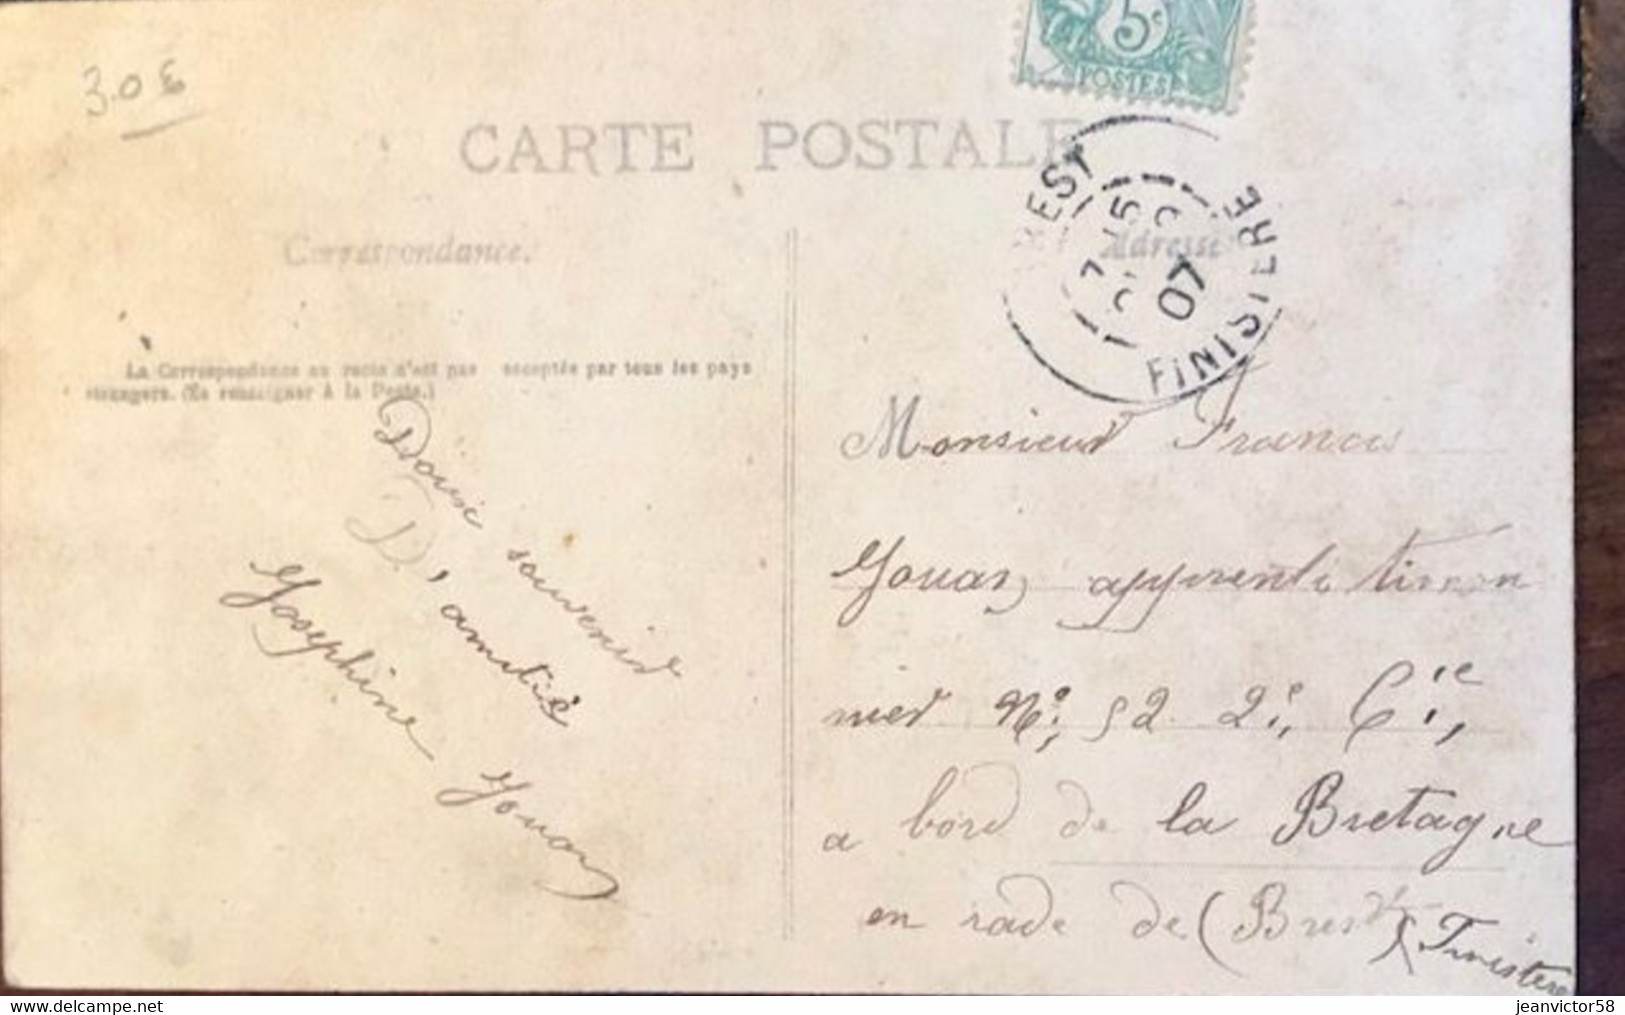 3.0 €
5c
POSTES
CARTE POSTALE
BREST
7 15
07
FINISTERE
Correspondance.
Adresse
La Correspondance au recto n'est pas acceptée par tous les pays
étrangers. (Se renseigner à la Poste.)
Doux souvenir
D'amitié
Joséphine Jouan
Monsieur Francois
Jouan apprenti timon
nier No. 52 2e, Cie,
a bord de la Bretagne
en rade de (Brest) (Finistere
delcampe.net
jeanvictor58